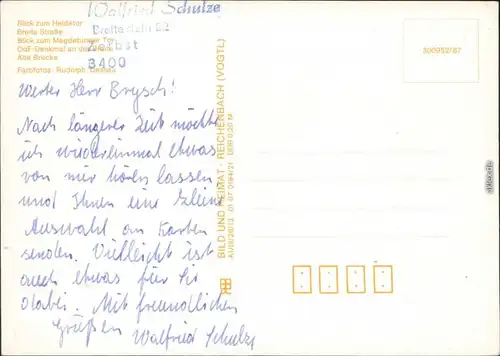 Blick zum Heidetor
Breite Straße
Blick zum Magdeburger Tor
OdF-Denkmal an der
Alte Brücke
Farbfotos: Rudolph,
Walfried Schulze
Breitestein 52
Zerbst
3400
Werter Herr Brysch!
Nach längerer Zeit möchte
ich wiedereinmal etwas
von mir hören lassen
und Ihnen eine kleine
Auswahl an Karten
senden. Vielleicht ist
auch etwas für Sie
dabei. Mit freundlichen
Grüßen Walfried Schulze
BILD UND HEIMAT · REICHENBACH (VOGTL)
A1/B/26/13 01 07 0194/21 DDR 0,20 M
300952/87